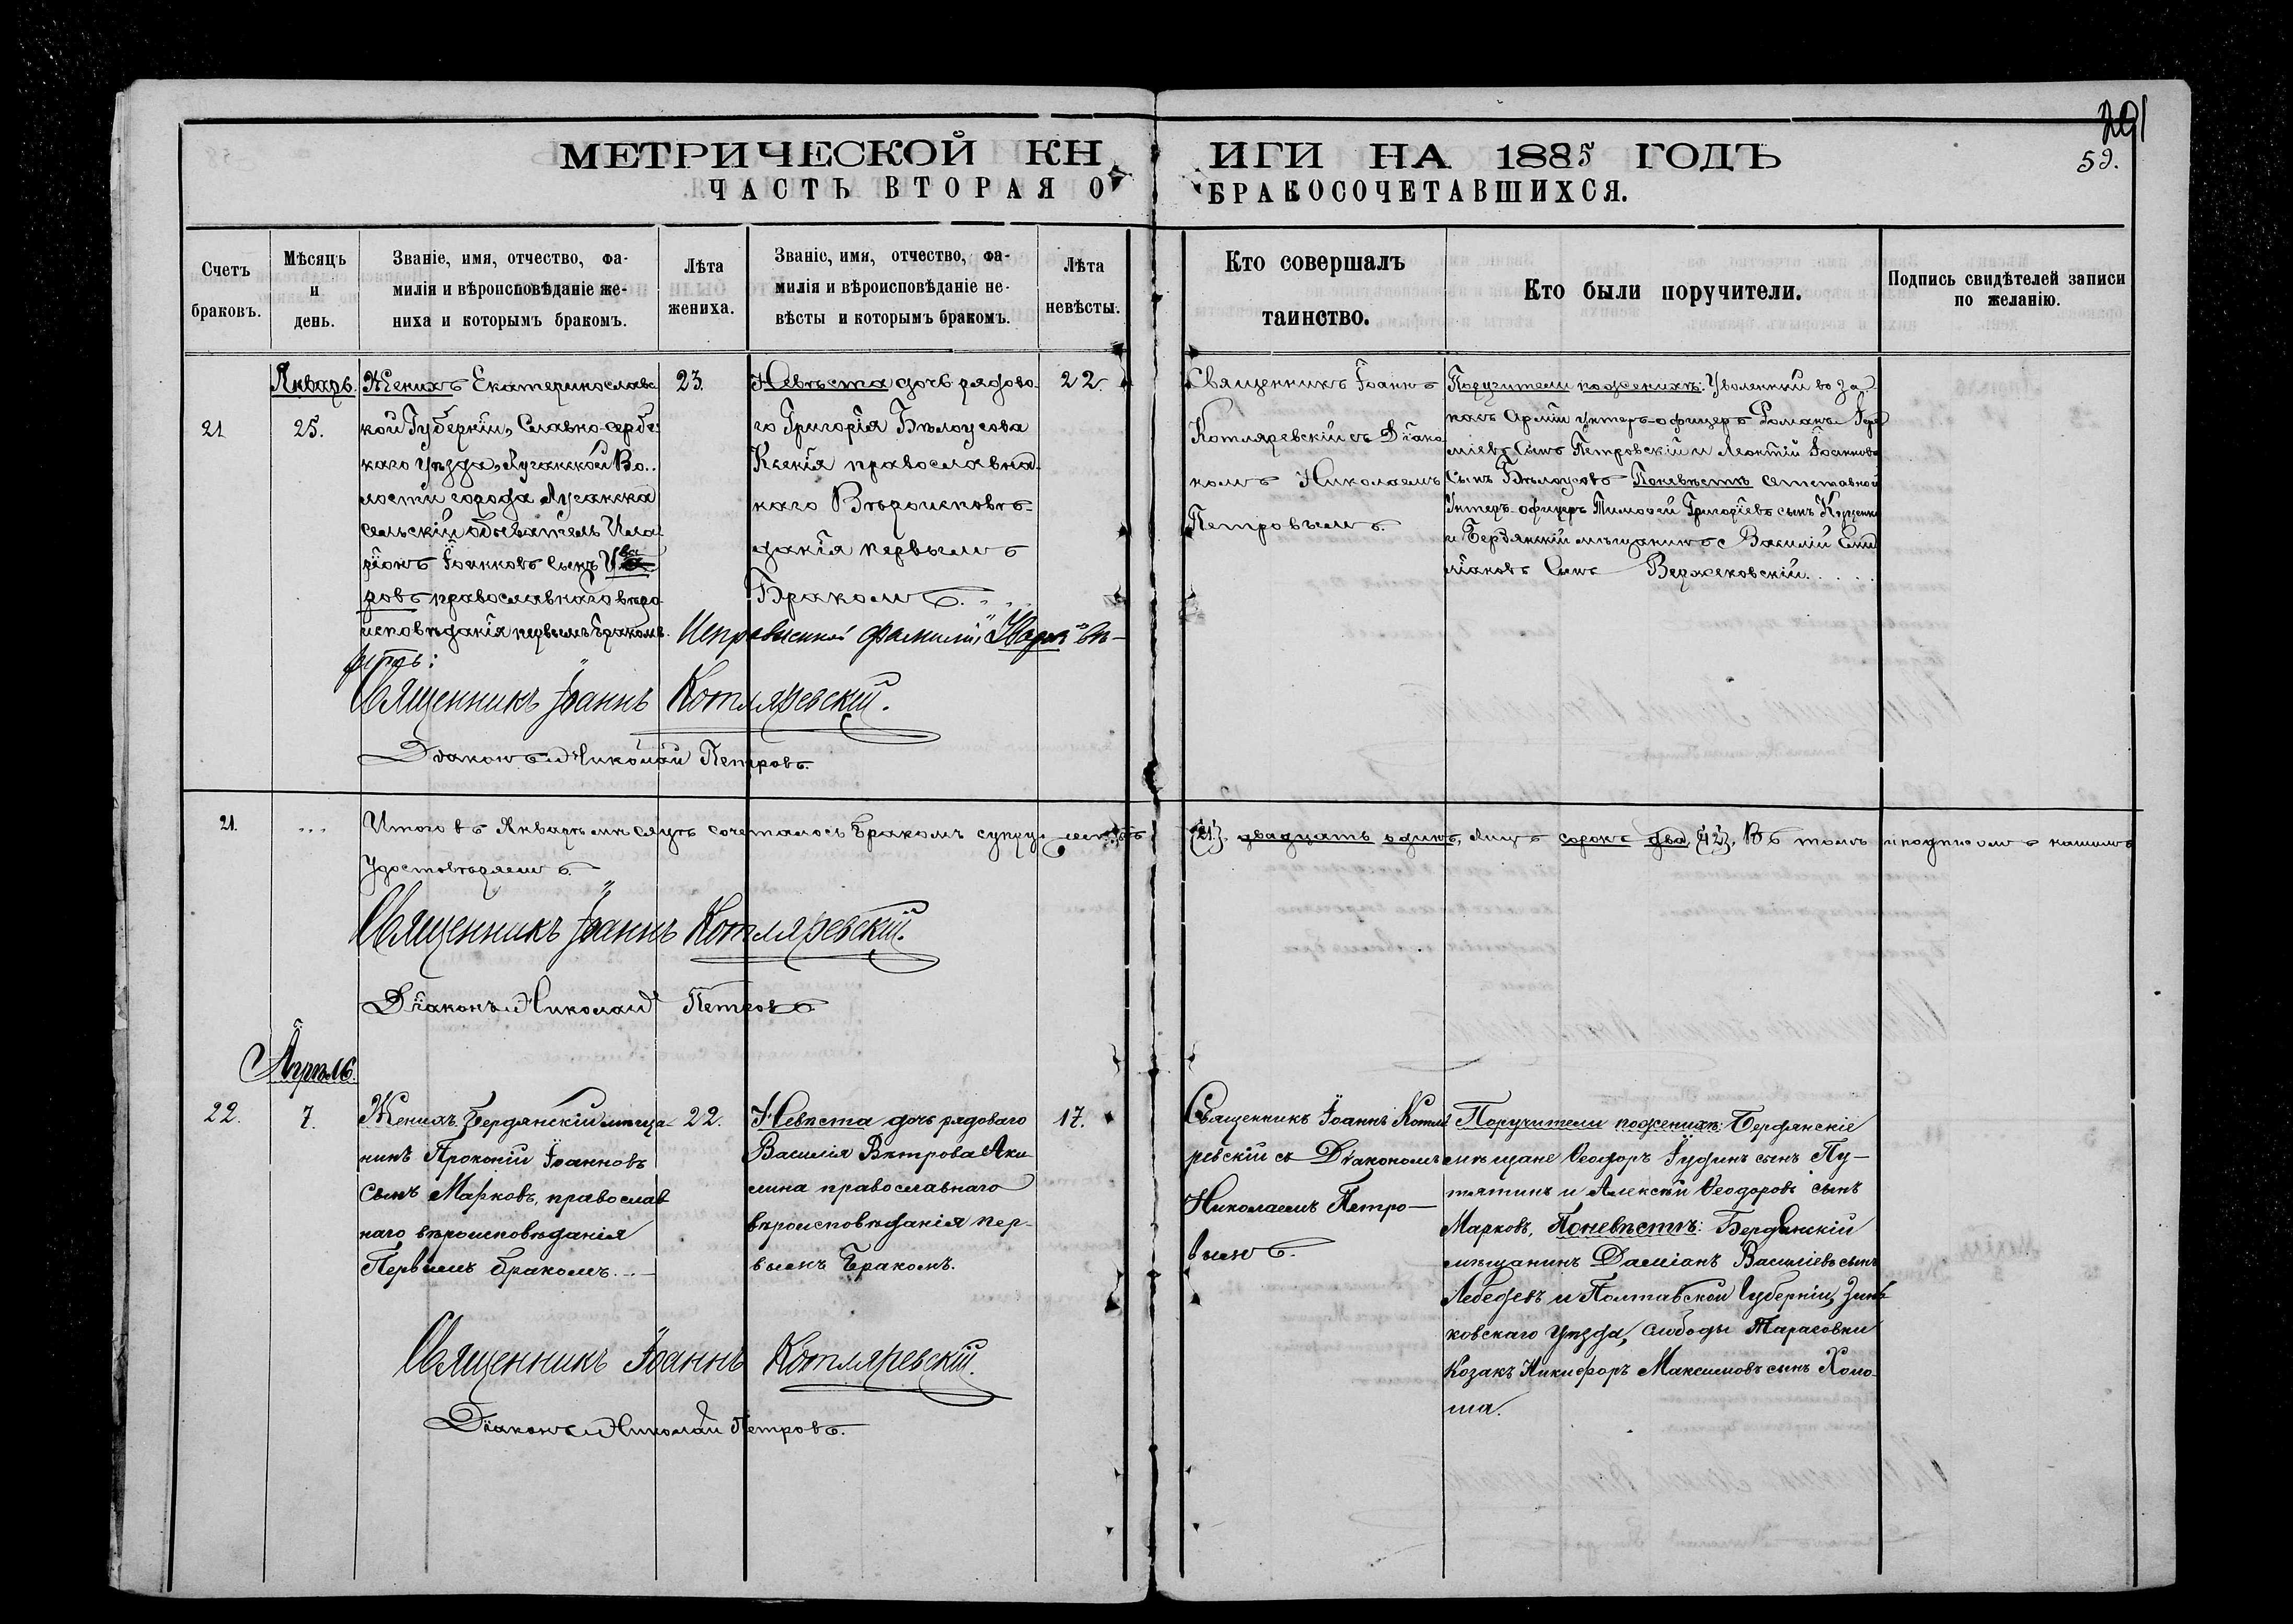 291
59.
МЕТРИЧЕСКОЙ КНИГИ НА 1885 ГОДЪ
ЧАСТЬ ВТОРАЯ О БРАКОСОЧЕТАВШИХСЯ.
Счетъ
браковъ.
Мѣсяцъ
и
день.
Званіе, имя, отчество, фа-
милія и вѣроисповѣданіе же-
ниха и которымъ бракомъ.
Лѣта
жениха.
Званіе, имя, отчество, фа-
милія и вѣроисповѣданіе не-
вѣсты и которымъ бракомъ.
Лѣта
невѣсты.
Кто совершалъ
таинство.
Кто были поручители.
Подпись свидѣтелей записи
по желанію.
21
Январь.
25.
Женихъ Екатеринославс
кой Губерніи, Славяно-сербс
каго уѣзда, Луганской Во..
лости города Луганска
сельскій обыватель Ила
ріонъ Іоанновъ сынъ Ува
ровъ православнаго вѣро
исповѣданія первымъ бракомъ.
23.
Невѣста дочь рядово
го Григорія Бѣлоусова
Ксенія православна
наго Вѣроисповѣ
данія первымъ
Бракомъ.
22.
Священникъ Іоаннъ
Котляревскій съ Діако
номъ Николаемъ
Петровымъ.
Поручители по женихѣ: Уволенный въ за
пасъ Арміи унтеръ-офицеръ Романъ
міевъ сынъ Петровскій и Леонтій Іоанновъ
Сынъ Бѣлоусовъ По невѣстѣ
Унтеръ-офицеръ Тимофей Григоріевъ сынъ
и Бердянскій мѣщанинъ Василій Еми
ліановъ Сынъ Вержековскій.
Исправленной фамиліи „Уваров" вѣ-
рить:
Священникъ Іоаннъ Котляревскій.
Діаконъ Николай Петровъ.
21.
Итого въ Январѣ мѣсяцѣ сочеталось бракомъ супру
(21). двадцать одинъ, лицъ сорокъ два (42). Въ томъ подписомъ нашимъ
Удостовѣряемъ
Священникъ Іоаннъ Котляревскій.
Діаконъ Николай Петровъ
Апрѣль.
22.
7.
Женихъ Бердянскій мѣща-
нинъ Прокопій Іоанновъ
Сынъ Марковъ, православ
наго вѣроисповѣданія
Первымъ бракомъ.
22.
Невѣста дочь рядоваго
Василія Вѣтрова Аки
лина православнаго
вѣроисповѣданія пер-
вымъ Бракомъ.
17.
Священникъ Іоаннъ Котля
ревскій съ Діакономъ
Николаемъ Петро-
вымъ.
Поручители по женихѣ: Бердянскіе
мѣщане Ѳеодоръ Іудинъ сынъ Пу-
тятинъ и Алексѣй Ѳеодоровъ сынъ
Марковъ, По невѣстѣ: Бердянскій
мѣщанинъ Даміанъ Василіевъ сынъ
Лебедевъ и Полтавской Губерніи, Зинь
ковскаго уѣзда, слободы Тарасовки
Козакъ Никифоръ Максимовъ сынъ Холо
ша.
Священникъ Іоаннъ Котляревскій.
Діаконъ Николай Петровъ.